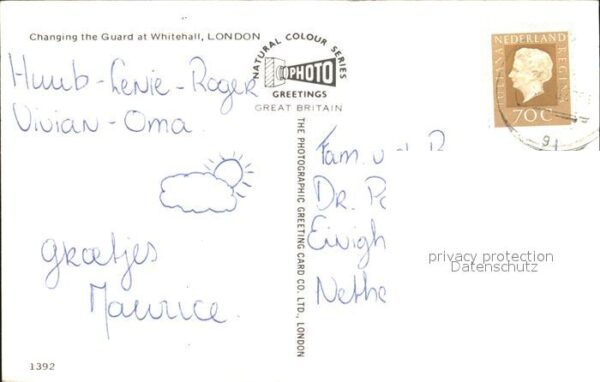 Changing the Guard at Whitehall, LONDON
NATURAL COLOUR SERIES
PHOTO
GREETINGS
GREAT BRITAIN
Huub-Lenie-Roger
Vivian-Oma
groetjes
Maurice.
1392
THE PHOTOGRAPHIC GREETING CARD CO. LTD., LONDON
NEDERLAND
JULIANA REGINA
70 C
91
Fam. v
Dr. P
Eivigh
Nethe
privacy protection
Datenschutz